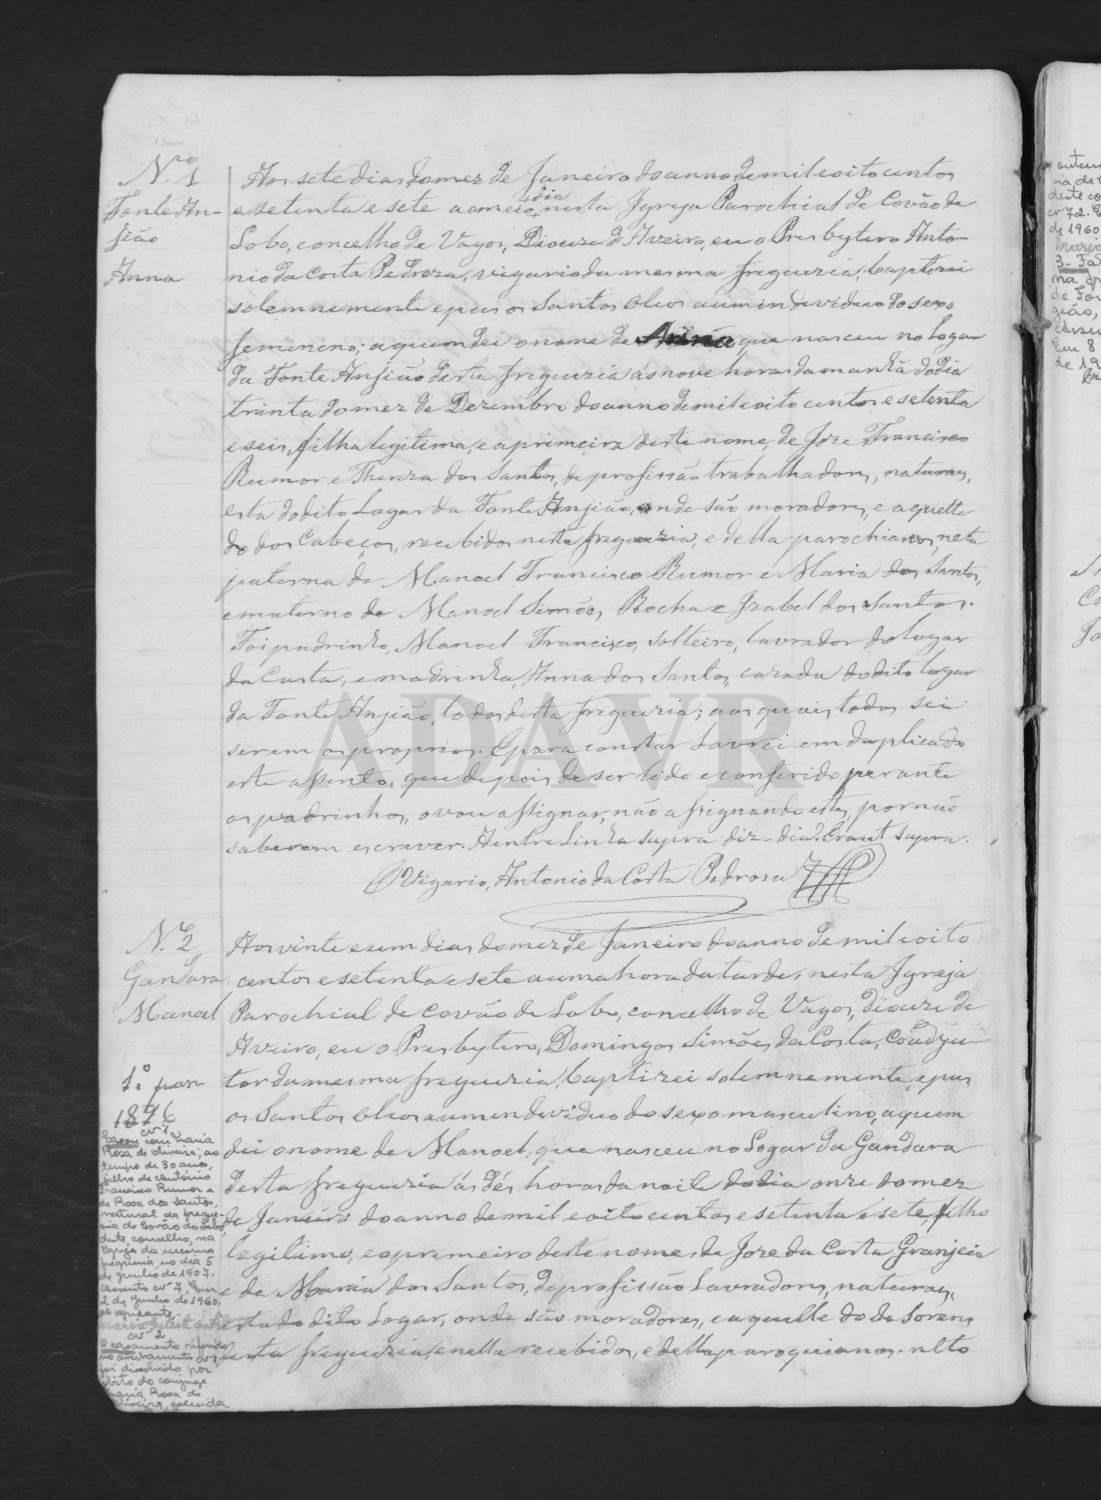 N.º 1
Fonte An-
gião
Anna
Aos sete dias do mez de Janeiro do anno de mil oito centos
e setenta e sete ao meio dia nesta Igreja Parochial de Covão de
Lobo, concelho de Vagos, Diocese d'Aveiro, eu o Presbytero Anto-
nio da Costa Pedroza, vigario da mesma freguezia, baptizei
solemnemente e puz os Santos oleos a um individuo do sexo
femenino; a quem dei o nome de Anna que nasceu no logar
da Fonte Anjião desta freguezia ás nove horas da manhã do dia
trinta do mez de Dezembro do anno de mil oito centos e setenta
e seis, filha legitima, e a primeira deste nome, de Joze Francisco
Rumor e Thereza dos Santos, de profissão trabalhadores, naturaes,
esta do dito Logar da Fonte Anjião, onde são moradores, e aquelle
do dos Cabeços, recebidos nesta freguezia, e della parochianos, neta
paterna de Manoel Francisco Rumor e Maria dos Santos,
e materna de Manoel Simões Rocha e Izabel dos Santos.
Foi padrinho, Manoel Francisco, solteiro, lavrador do lugar
da Costa, e madrinha, Anna dos Santos, cazada do dito logar
da Fonte Anjião, todos desta freguezia; aos quais todos sei
serem os proprios. E para constar lavrei em duplicado
este assento, que depois de ser lido e conferido perante
os padrinhos, o vou assignar, não assignando estes, por não
saberem escrever. A entre linha supra diz - dia. Era ut supra.
O Vigario, Antonio da Costa Pedroza
N.º 2
Gandara
Manoel
Aos vinte e um dias do mez de Janeiro do anno de mil oito
centos e setenta e sete a uma hora da tarde, nesta Igreja
Parochial de Covão de Lobo, concelho de Vagos, diocese de
Aveiro, eu o Presbytero, Domingos Simões da Costa, Coadju-
tor da mesma freguezia, baptizei solemnemente, e puz
os Santos oleos a um individuo do sexo masculino, a quem
dei o nome de Manoel, que nasceu no Logar da Gandara
desta freguezia ás dés horas da noite do dia onze do mez
de Janeiro do anno de mil e oito centos e setenta e sete, filho
legitimo, e o primeiro deste nome, de Joze da Costa Granjeia
e de Maria dos Santos, de profissão Lavradores, naturaes,
esta do dito Logar, onde são moradores, e aquelle do de
desta freguezia, e nella recebidos, e della paroquianos. neto
nº 1
Casou com Maria
Rosa de Oliveira, ao
tempo de 30 anos,
filha de António
Francisco Rumor e
de Rosa dos Santos,
natural da fregue-
sia de Covão do Lobo,
deste concelho, na
Igreja da mesma
freguesia, no dia 5
de Junho de 1907.
Assento nº 7. Em
2 de Junho de 1960.
nº 2
O casamento referido
no averbamento nº 1
foi dissolvido por
óbito do conjuge
Maria Rosa de
Oliveira,
ADAVR
de 1960